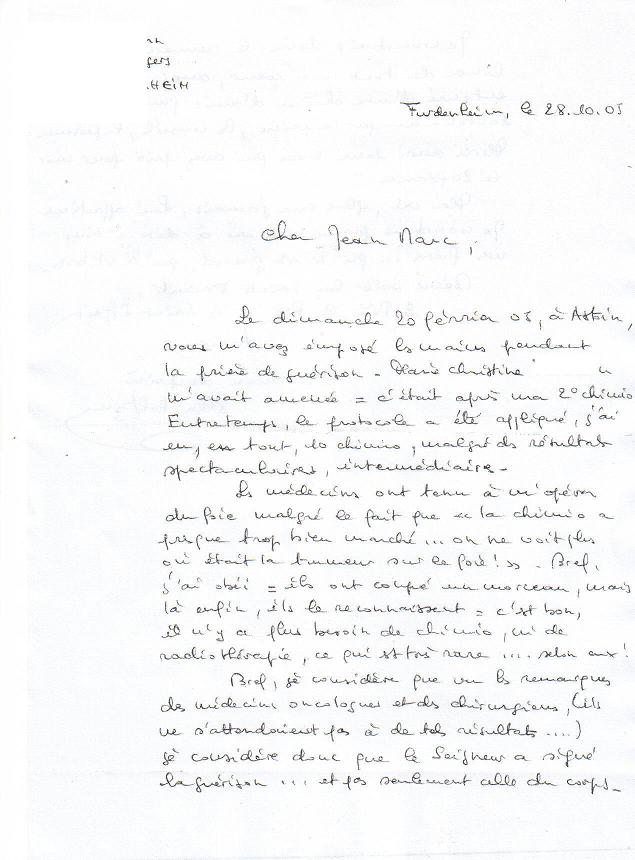 gers
.HEIM
Furdenheim, le 28.10.05
Cher Jean Marc,
Le dimanche 20 février 05, à
vous m'avez imposé les mains pendant
la prière de guérison - Marie Christine
m'avait amenée = c'était après ma 2° chimio
Entretemps, le protocole a été appliqué, j'ai
eu, en tout, 10 chimio, malgré des résultats
spectaculaires, intermédiaires -
Les médecins ont tenu à m'opérer
du foie malgré le fait que « la chimio a
presque trop bien marché... on ne voit plus
où était la tumeur sur le foie! » - Bref,
j'ai obéi = ils ont coupé un morceau, mais
là enfin, ils le reconnaissent = c'est bon,
il n'y a plus besoin de chimio, ni de
radiothérapie, ce qui est très rare ... selon eux!
Bref, je considère que vu les remarques
des médecins oncologues et des chirurgiens, (ils
ne s'attendaient pas à de tels résultats ....)
je considère donc que le Seigneur a signé
la guérison ... et pas seulement celle du corps -